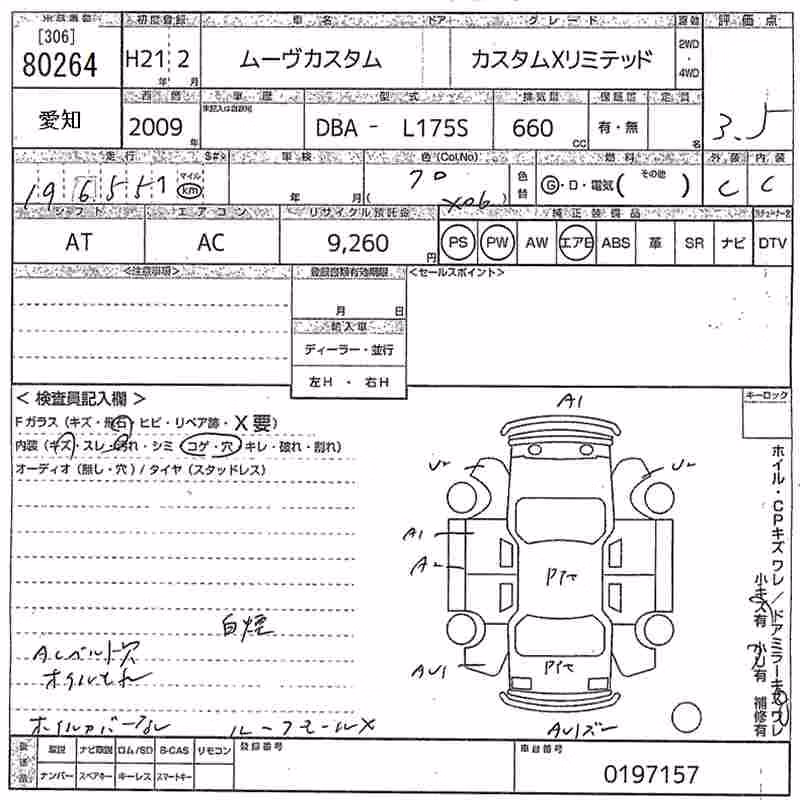 出品番号 初度登録 車名 ドア グレード 駆動 評価点
[306]
80264 H21 2 年 月 ムーヴカスタム カスタムXリミテッド 2WD・4WD 3.5
愛知 西暦 車歴 型式 排気量 保証書 定員
2009 年 DBA - L175S 660 cc 有・無 名
走行 車検 色(Col.No) 燃料 外装 内装
196551 マイル km 年 月 70 ( X06 ) 色替 G・D・電気( その他 ) C C
シフト エアコン リサイクル預託金 純正装備品
AT AC 9,260 円 PS PW AW エアB ABS 革 SR ナビ DTV
<注意事項> 登録書類有効期限 <セールスポイント>
月 日
輸入車
ディーラー・並行
左H ・ 右H
< 検査員記入欄 > A1 キーロック
Fガラス (キズ・飛石・ヒビ・リペア跡・X要)
内装 (キズ・スレ・汚れ・シミ・コゲ・穴・キレ・破れ・割れ)
オーディオ (無し・穴) / タイヤ (スタッドレス)
U2 U2
A1
A2
Pﾅﾋ
白煙
ACベルト状
オイルもれ
AU1 Pﾅﾋ
ホイルカバーなし ルーフモールX AU1ズー
ホイル・CPキズワレ/ドアミラーキズワレ
小キズ有 小U有 補修有
取説 ナビ取説 ロム/SD B-CAS リモコン 登録番号 車台番号
ナンバー スペアキー キーレス スマートキー 0197157